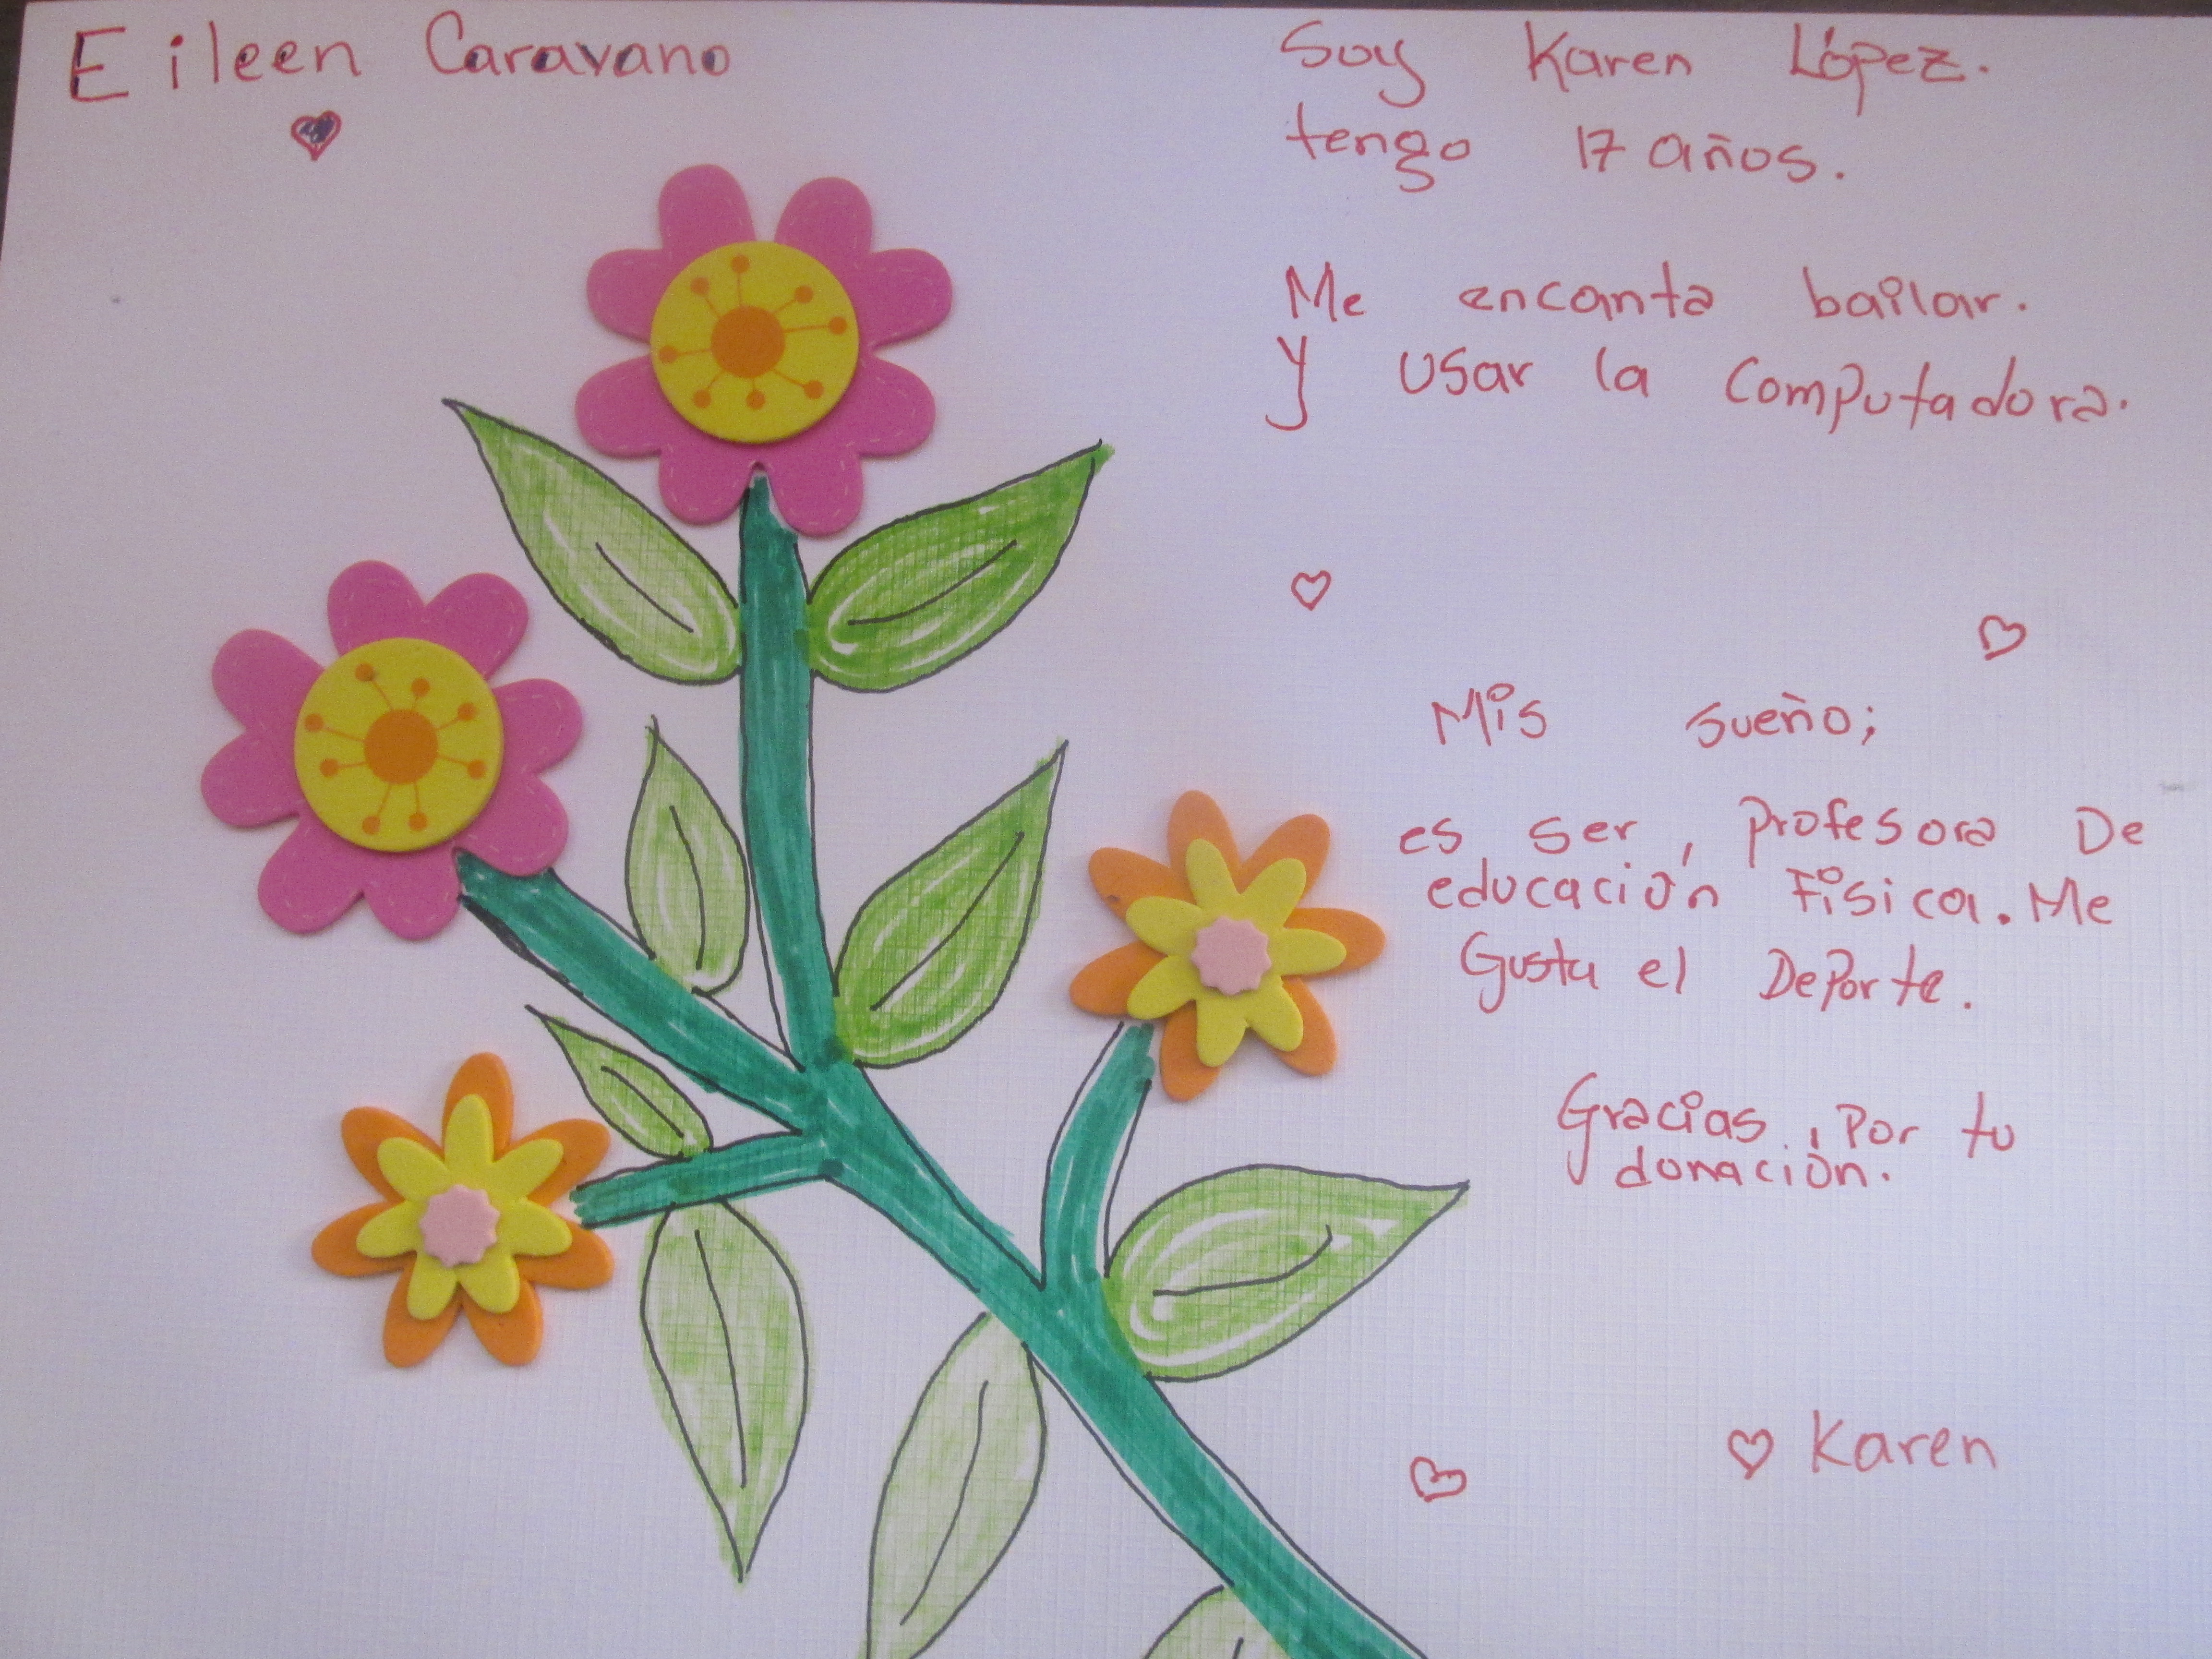 Eileen Caravano
Soy Karen López.
tengo 17 años.
Me encanta bailar.
y usar la computadora.
Mis sueño;
es ser, profesora De
educación Física. Me
Gusta el Deporte.
Gracias, Por tu
donación.
Karen